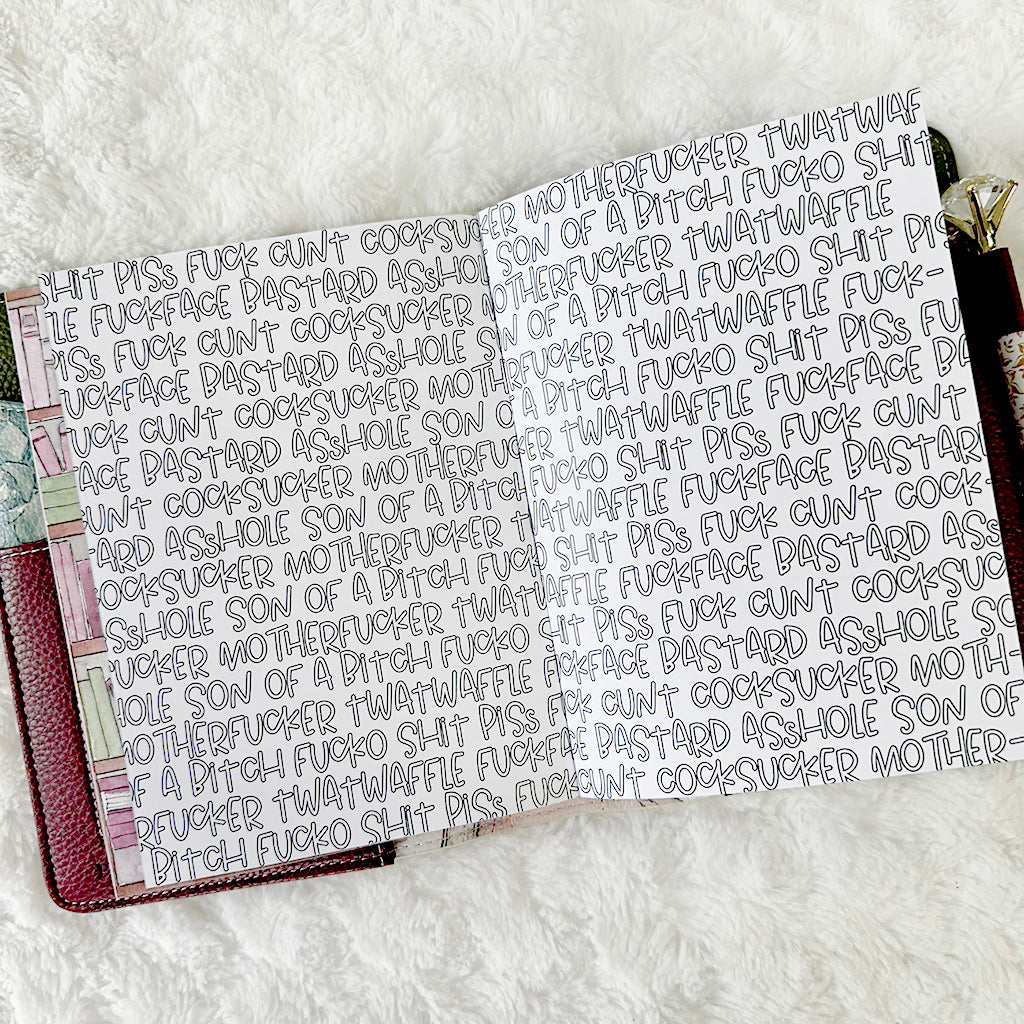 SHIT PISS FUCK CUNT COCKSUC
LE FUCKFACE BASTARD ASSHOL
PISS FUCK CUNT COCKSUCKER
FUCKFACE BASTARD ASSHOLE S
UCK CUNT COCKSUCKER MOTH
ACE BASTARD ASSHOLE SON O
CUNT COCKSUCKER MOTHERFUC
TARD ASSHOLE SON OF A BITCH
COCKSUCKER MOTHERFUCKER T
SSHOLE SON OF A BITCH FUCK
SUCKER MOTHERFUCKER TWAT
HOLE SON OF A BITCH FUCKO
MOTHERFUCKER TWATWAFFLE F
OF A BITCH FUCKO SHIT PISS
RFUCKER TWATWAFFLE FUCKF
BITCH FUCKO SHIT PISS FUCK
KER MOTHERFUCKER TWATWAF
SON OF A BITCH FUCKO SHIT
OTHERFUCKER TWATWAFFLE
N OF A BITCH FUCKO SHIT PIS
RFUCKER TWATWAFFLE FUCK-
A BITCH FUCKO SHIT PISS FU
ER TWATWAFFLE FUCKFACE BA
FUCKO SHIT PISS FUCK CUNT
WATWAFFLE FUCKFACE BASTARD
SHIT PISS FUCK CUNT COCK-
AFFLE FUCKFACE BASTARD ASS
HIT PISS FUCK CUNT COCKSUC
CKFACE BASTARD ASSHOLE SO
CK CUNT COCKSUCKER MOTH-
E BASTARD ASSHOLE SON OF
CUNT COCKSUCKER MOTHER-